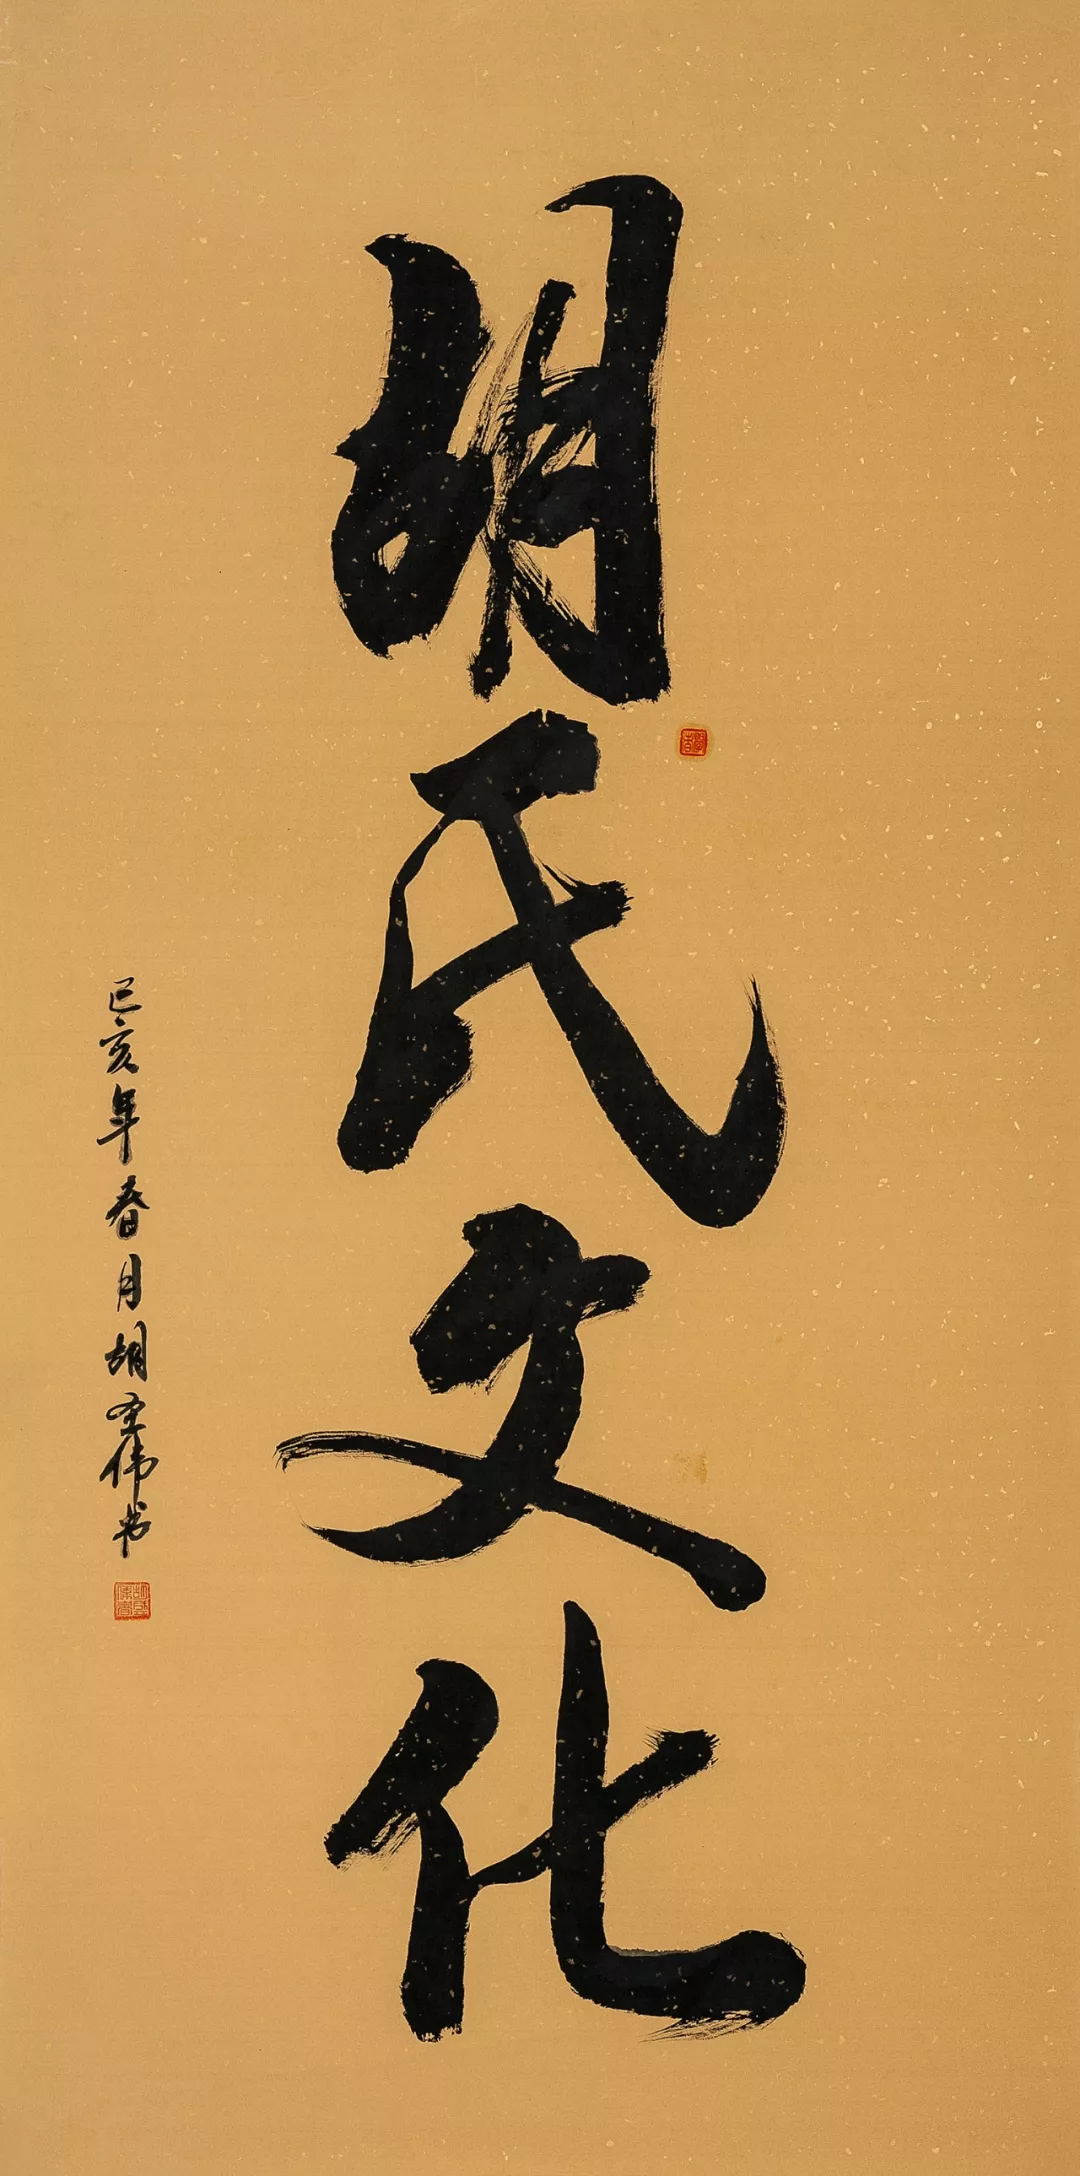 胡氏文化
己亥年春月胡圣伟书